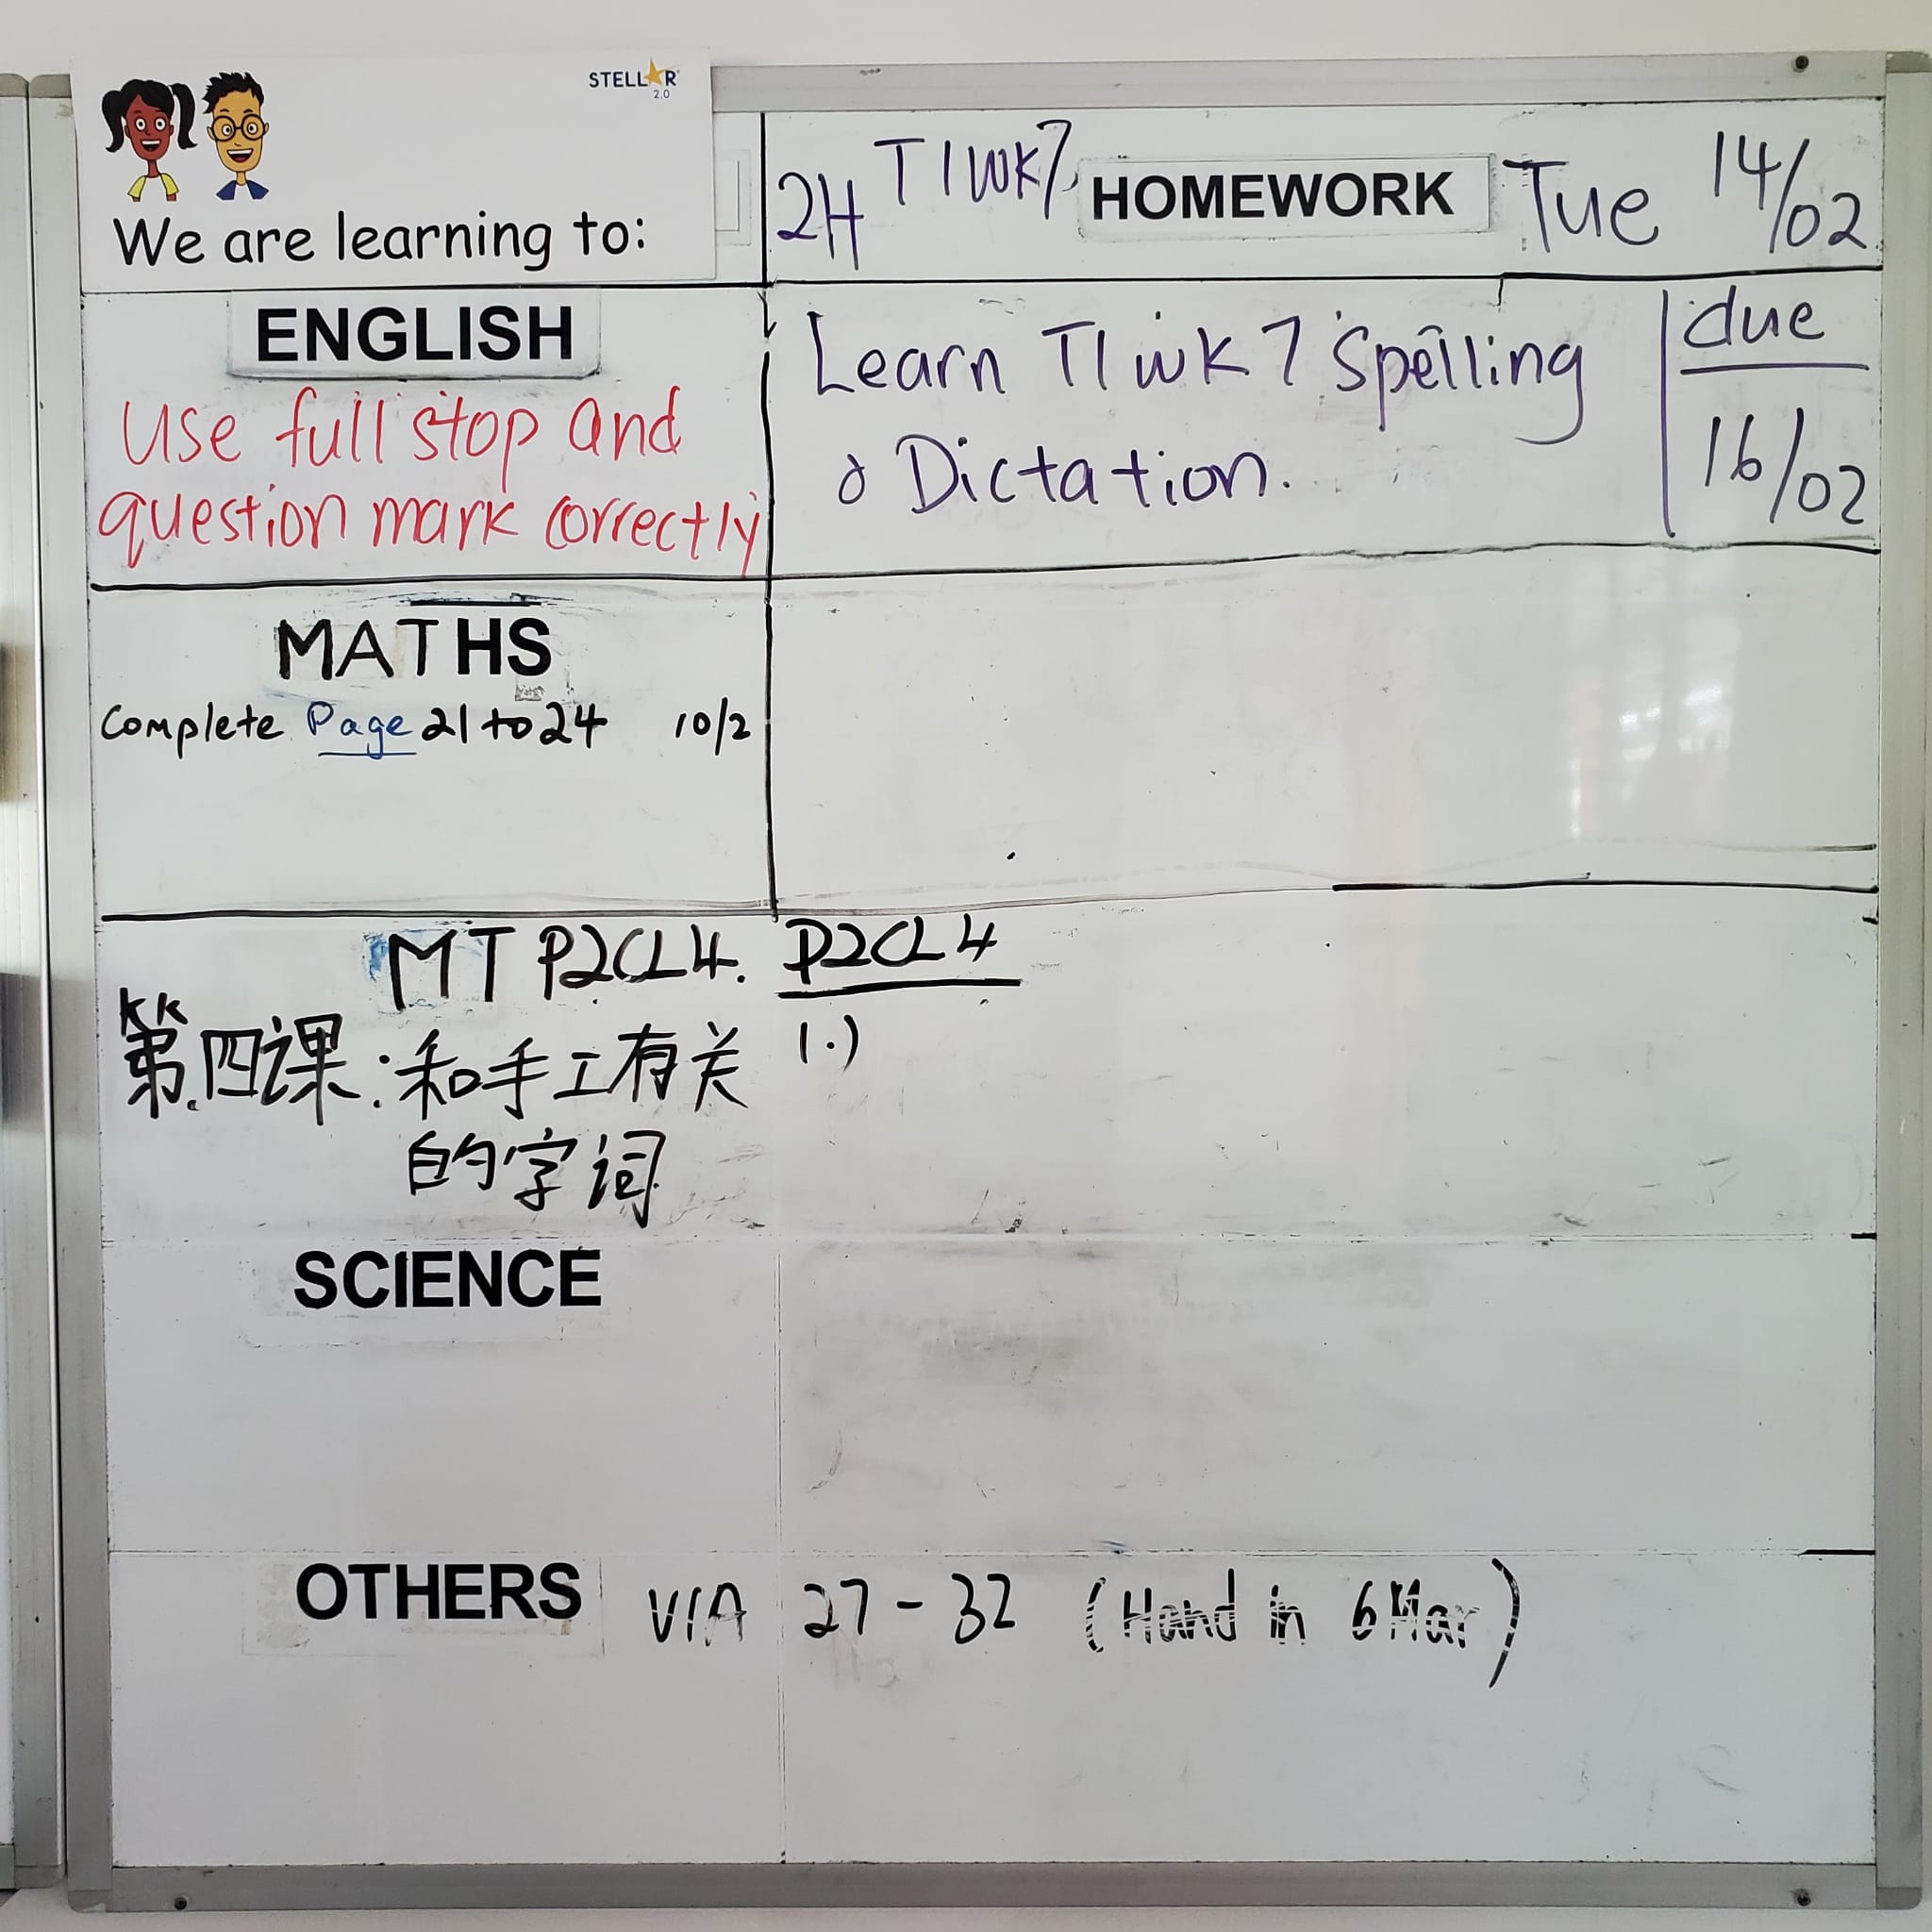 STELLAR 2.0
We are learning to:
2H T1 Wk7 HOMEWORK Tue 14/02
ENGLISH
Use full stop and
question mark correctly
Learn T1 wk 7 Spelling
& Dictation.
due
16/02
MATHS
Complete Page 21 to 24 10/2
MT P2CL4.
第四课:和手工有关
的字词
P2CL4
1.)
SCIENCE
OTHERS VIA 27 - 32 (Hand in 6 Mar)